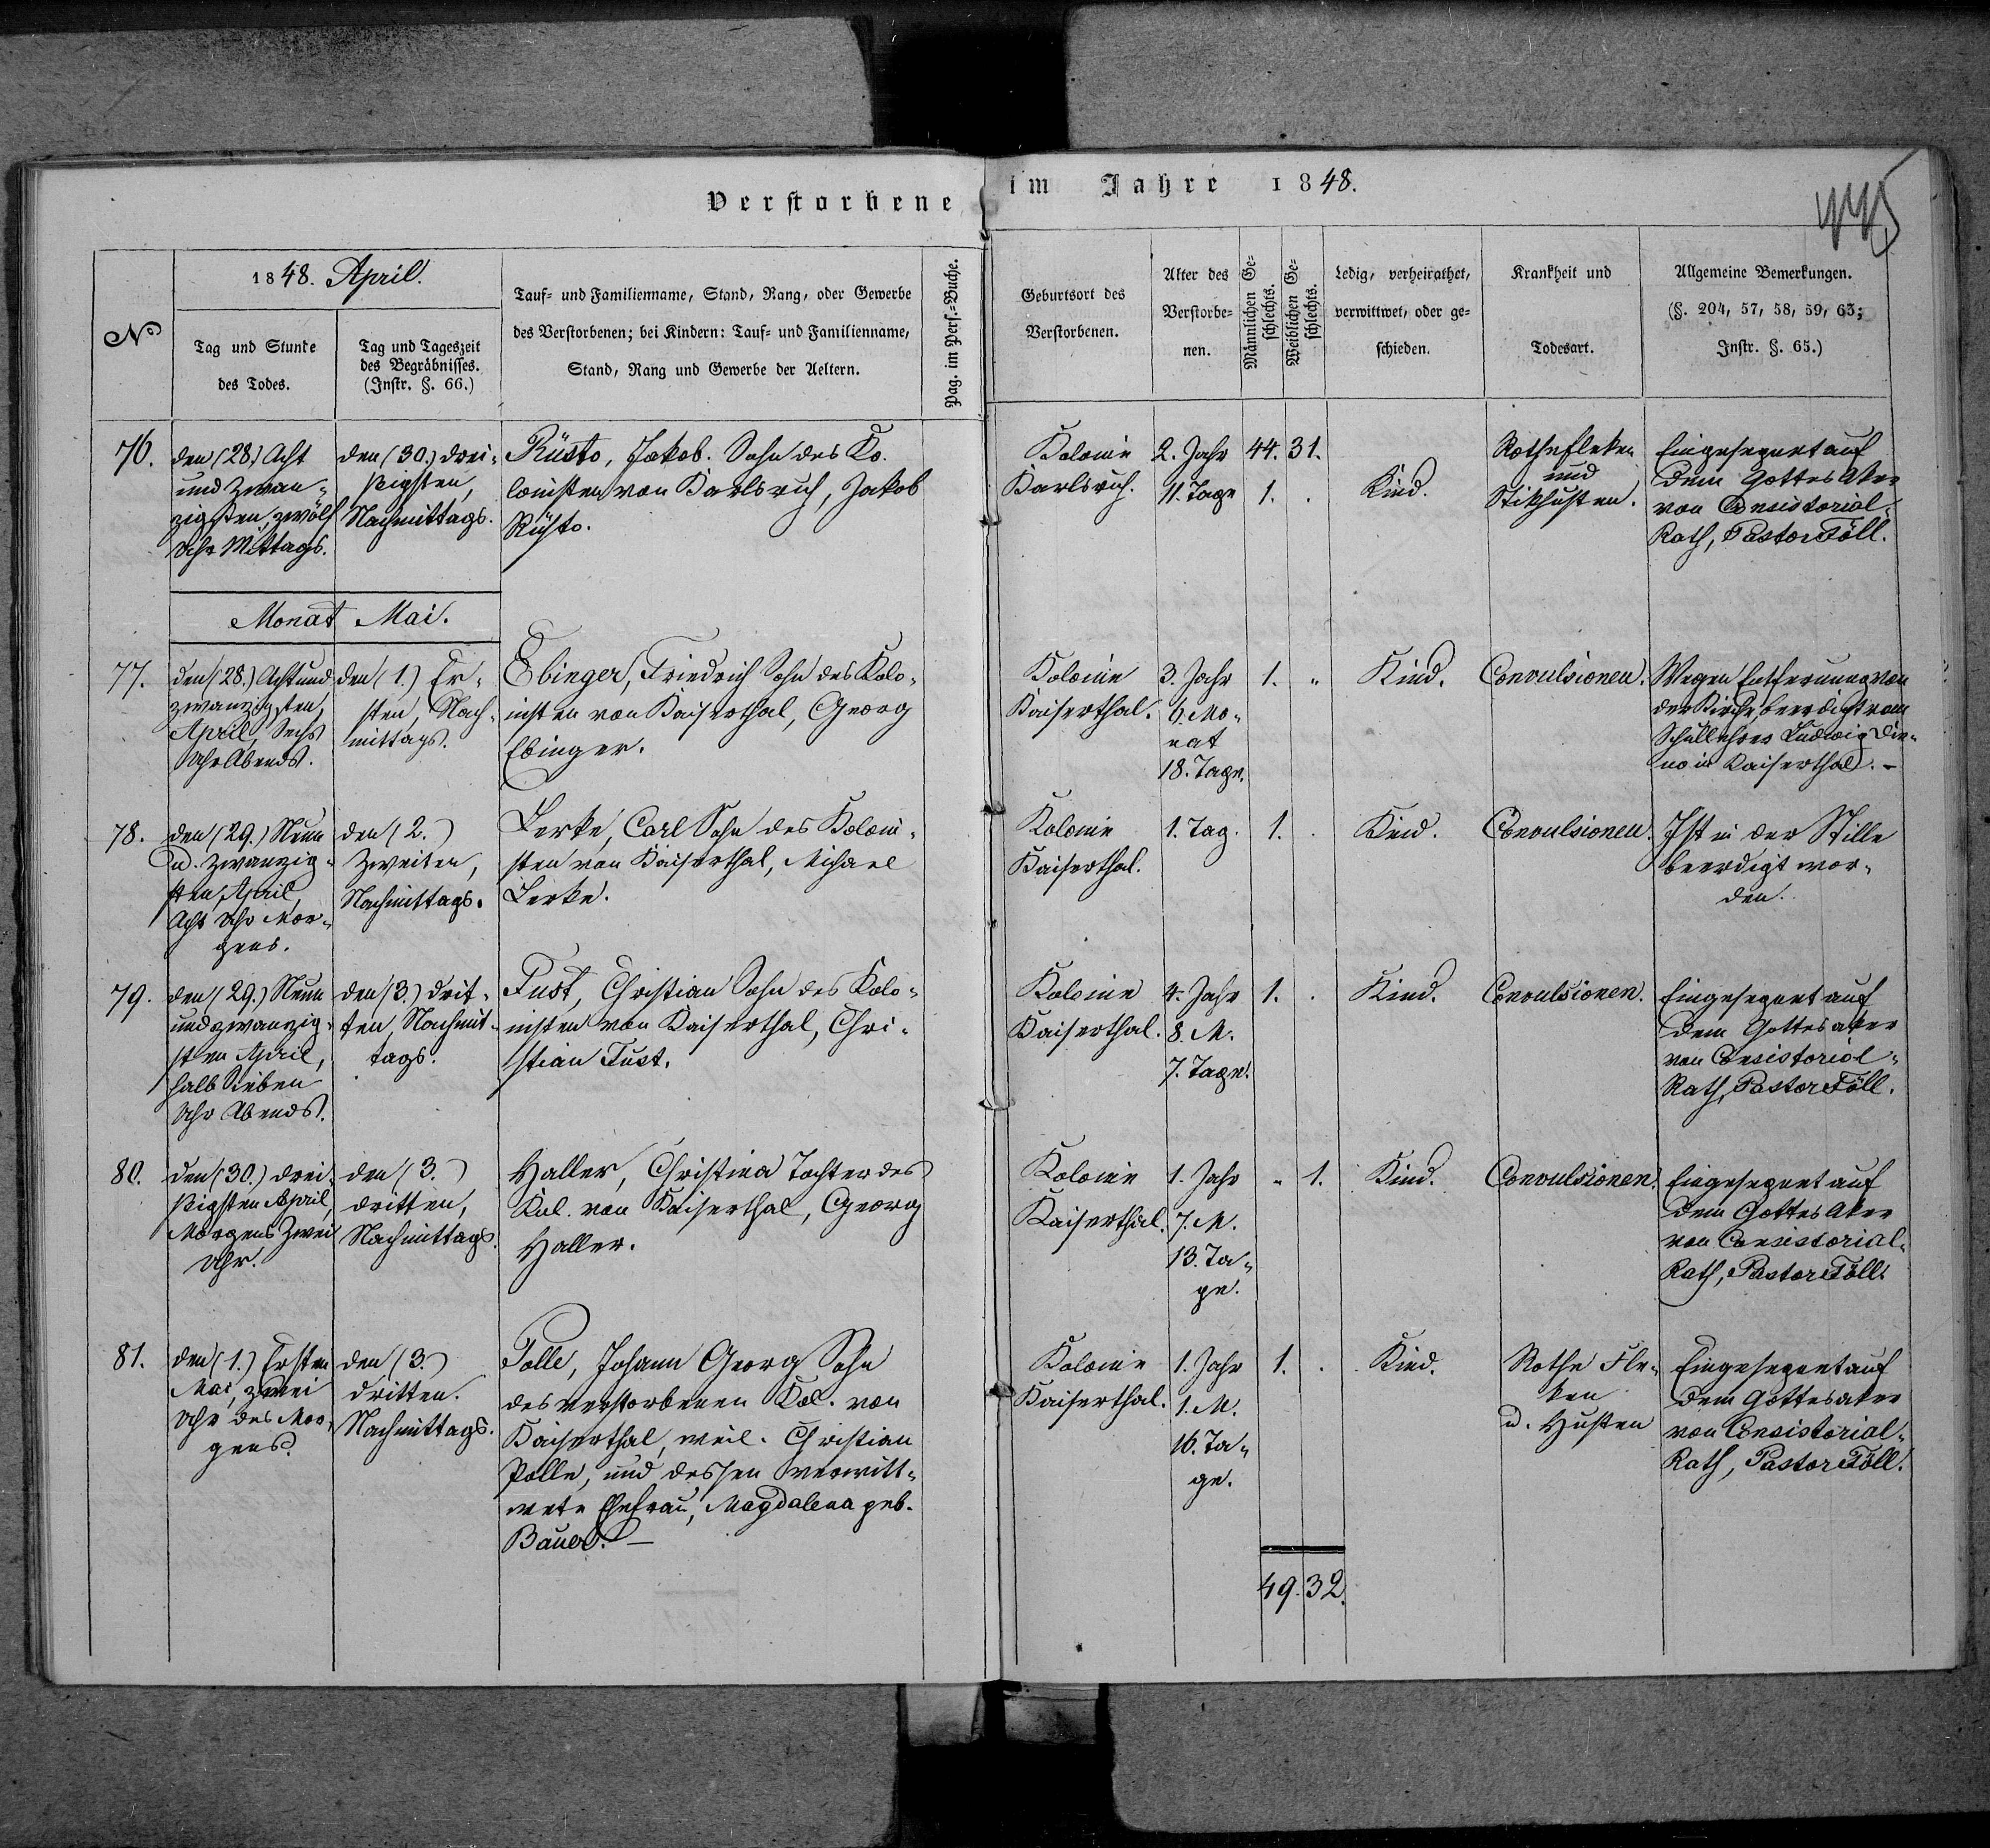 Verstorbene im Jahre 1848.
445
No
1848. April.
Tag und Stunde
des Todes.
Tag und Tageszeit
des Begräbnisses.
(Instr. §. 66.)
Tauf- und Familienname, Stand, Rang, oder Gewerbe
des Verstorbenen; bei Kindern: Tauf- und Familienname,
Stand, Rang und Gewerbe der Aeltern.
Pag. im Pers.-Buche.
Geburtsort des
Verstorbenen.
Alter des
Verstorbe-
nen.
Männlichen Ge-
schlechts.
Weiblichen Ge-
schlechts.
Ledig, verheirathet,
verwittwet, oder ge-
schieden.
Krankheit und
Todesart.
Allgemeine Bemerkungen.
(§. 204, 57, 58, 59, 63;
Instr. §. 65.)
76.
den (28.) Acht
und Zwan-
zigsten, zwölf
Uhr Mittags.
den (30.) drei-
ßigsten,
Nachmittags.
Rüsto, Jakob. Sohn des Ko-
lonisten von Karlsruh, Jakob
Rüsto.
Kolonie
Karlsruh.
2. Jahr
11. Tage
44. 31.
1. .
Kind.
Rothefleken
und
Stikhusten.
Eingesegnet auf
dem Gottes Aker
von Consistorial-
Rath, Pastor Föll.
Monat Mai.
77.
den (28.) Acht und
zwanzigsten,
April, Sechs
Uhr Abends.
den (1.) Er-
sten, Nach-
mittags.
Ebinger, Friedrich Sohn des Kolo-
nisten von Kaiserthal, Georg
Ebinger.
Kolonie
Kaiserthal.
3. Jahr
6. Mo-
nat
18. Tage.
1. "
Kind.
Convulsionen.
Wegen Entfernung von
der Kirche beerdigt vom
Schullehrer Ludwig Die-
no in Kaiserthal. -
78.
den (29.) Neun
u. zwanzig-
sten, April,
Acht Uhr Mor-
gens.
den (2.)
Zweiten,
Nachmittags.
Lerke, Carl Sohn des Koloni-
sten von Kaiserthal, Michael
Lerke.
Kolonie
Kaiserthal.
1. Tag.
1. .
Kind.
Convulsionen.
Ist in der Stille
beerdigt wor-
den.
79.
den (29.) Neun
und zwanzig-
sten April,
halb Sieben
Uhr Abends.
den (3.) drit-
ten, Nachmit-
tags.
Fust, Christian Sohn des Kolo-
nisten von Kaiserthal, Chri-
stian Fust.
Kolonie
Kaiserthal.
4. Jahr
8. M.
7. Tage.
1. .
Kind.
Convulsionen.
Eingesegnet auf
dem Gottesaker
von Consistorial-
Rath, Pastor Föll.
80.
den (30.) drei-
ßigsten April,
Morgens Zwei
Uhr.
den (3.)
dritten,
Nachmittags.
Haller, Christina Tochter des
Kol. von Kaiserthal, Georg
Haller.
Kolonie
Kaiserthal.
1. Jahr
7. M.
13. Ta-
ge.
" 1.
Kind.
Convulsionen.
Eingesegnet auf
dem Gottes Aker
von Consistorial-
Rath, Pastor Föll.
81.
den (1.) Ersten
Mai, zwei
Uhr des Mor-
gens.
den (3.)
dritten.
Nachmittags.
Polle, Johann Georg Sohn
des verstorbenen Kol. von
Kaiserthal, weil. Christian
Polle, und dessen verwitt-
wete Ehefrau, Magdalena geb.
Bauer. -
Kolonie
Kaiserthal.
1. Jahr
1. M.
16. Ta-
ge.
1. .
Kind.
Rothe Fle-
ken
u. Husten
Eingesegnet auf
dem Gottesaker
von Consistorial-
Rath, Pastor Föll.
49. 32.